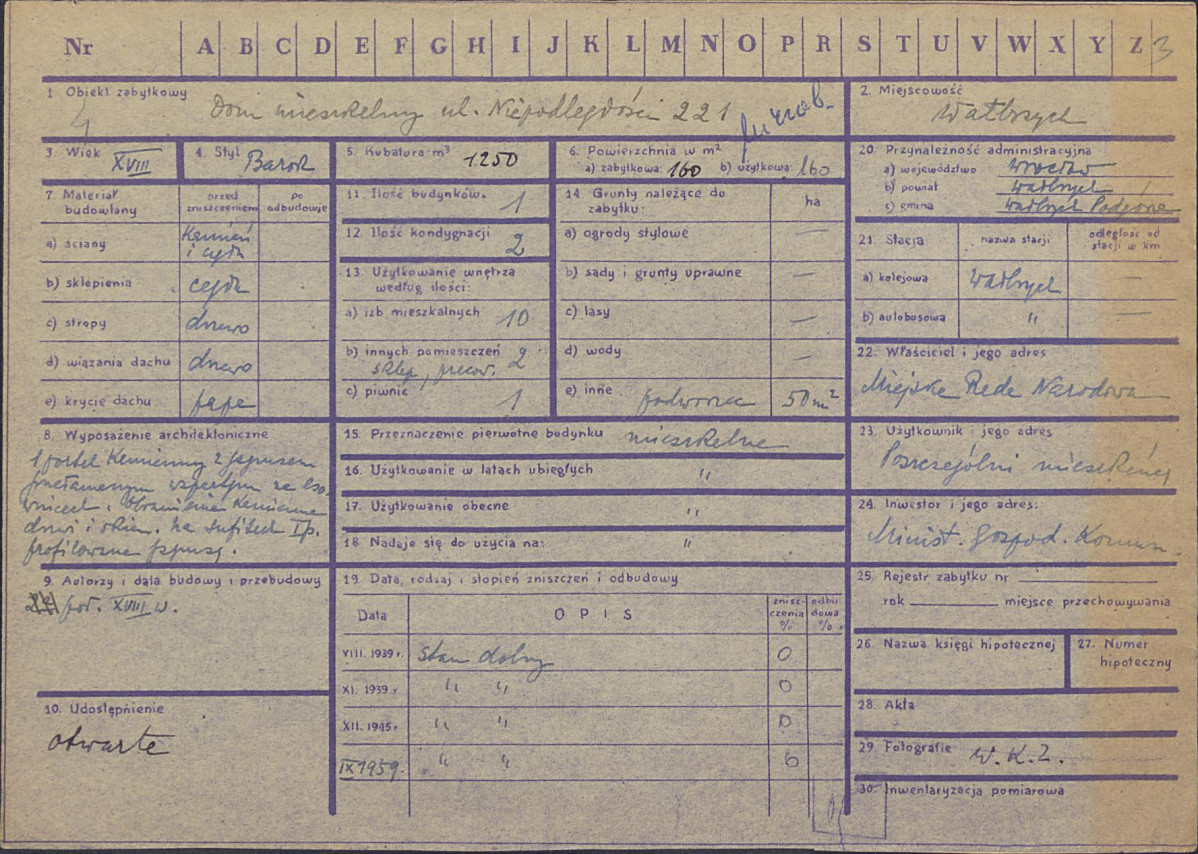 Nr A B C D E F G H I J K L M N O P R S T U V W X Y Z 3
1 Obiekt zabytkowy
4 Dom mieszkalny ul. Niepodległości 221
2. Miejscowość
Wałbrzych
3. Wiek XVIII
4. Styl Barok
5. Kubatura m³ 1250
6. Powierzchnia w m²
a) zabytkowa: 160 b) użytkowa: 160
20. Przynależność administracyjna
a) województwo Wrocław
b) powiat Wałbrzych
c) gmina Wałbrzych Podgórze
7. Materiał budowlany
przed zniszczeniem
po odbudowie
a) ściany Kamień i cegła
b) sklepienia cegła
c) stropy drzewo
d) wiązania dachu drzewo
e) krycie dachu papa
11. Ilość budynków. 1
12. Ilość kondygnacji 2
13. Użytkowanie wnętrza
według ilości:
a) izb mieszkalnych 10
b) innych pomieszczeń 2
sklep, pracow.
c) piwnic 1
14. Grunty należące do
zabytku: ha
a) ogrody stylowe —
b) sady i grunty uprawne —
c) lasy —
d) wody —
e) inne podworzec 50 m²
21. Stacja nazwa stacji odległość od stacji w km
a) kolejowa Wałbrzych —
b) autobusowa " —
22. Właściciel i jego adres
Miejska Rada Narodowa
8. Wyposażenie architektoniczne
1 portal Kamienny z gzymsem
przełamanym wspartym na
. Obramienia Kamienne
drzwi i okien. Na sufitach I p.
profilowane gzymsy.
15. Przeznaczenie pierwotne budynku mieszkalne
16. Użytkowanie w latach ubiegłych "
17. Użytkowanie obecne "
18. Nadaje się do użycia na: "
23. Użytkownik i jego adres
Poszczególni mieszkańcy
24. Inwestor i jego adres:
Minist. Gospod. Komun.
9. Autorzy i data budowy i przebudowy
poł. XVIII w.
19. Data, rodzaj i stopień zniszczeń i odbudowy
Data OPIS zniszczenia % odbudowa %
VIII. 1939 r. Stan dobry 0
XI. 1939 r " " 0
XII. 1945 r " " 0
IX 1959. " " 0
25. Rejestr zabytku nr
rok miejsce przechowywania
26. Nazwa księgi hipotecznej
27. Numer
hipoteczny
10. Udostępnienie
otwarte
28. Akta
29. Fotografie W.K.Z.
30. Inwentaryzacja pomiarowa